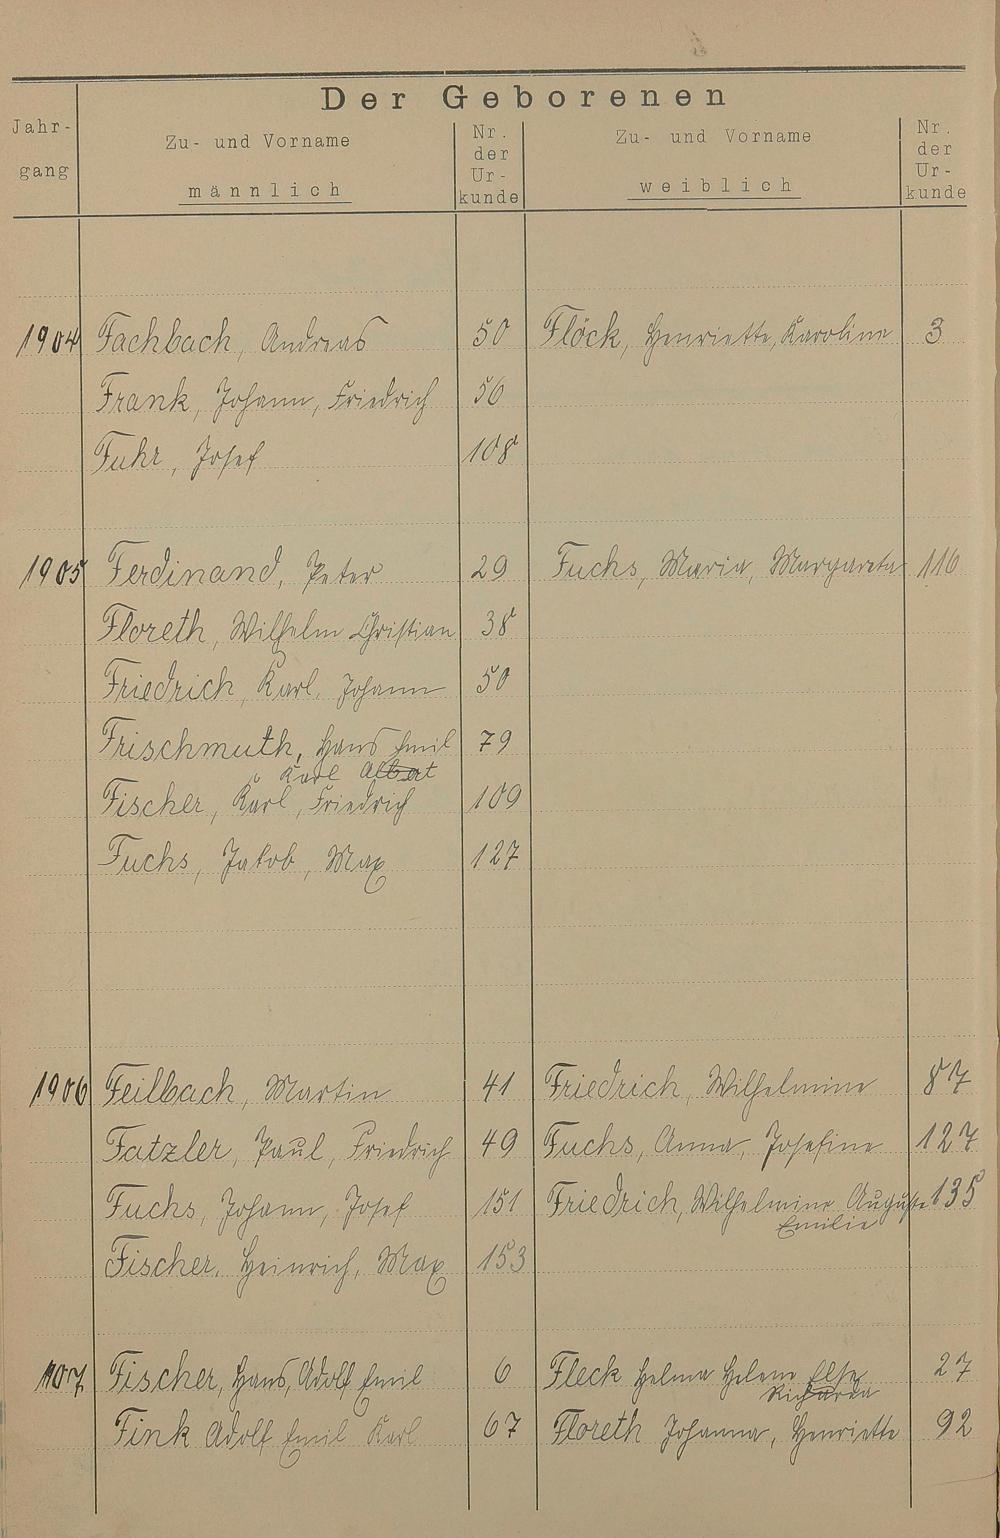 Der Geborenen
Jahr-
gang
Zu- und Vorname
männlich
Nr.
der
Ur-
kunde
Zu- und Vorname
weiblich
Nr.
der
Ur-
kunde
1904 Fachbach, Andreas 50 Flöck, Henriette, Karoline 3
Frank, Johann, Friedrich 56
Fuhr, Josef 108
1905 Ferdinand, Peter 29 Fuchs, Maria, Margareta 110
Floreth, Wilhelm Christian 38
Friedrich, Karl, Johann 50
Frischmuth, Hans Emil 79
Karl Albert
Fischer, Karl, Friedrich 109
Fuchs, Jakob, Max 127
1906 Feilbach, Martin 41 Friedrich, Wilhelmine 87
Fatzler, Paul, Friedrich 49 Fuchs, Anna, Josefine 127
Fuchs, Johann, Josef 151 Friedrich, Wilhelmine Auguste 135
Emilie
Fischer, Heinrich, Max 153
1907 Fischer, Hans, Adolf Emil 6 Fleck Helma Helene Else 27
Richarda
Fink Adolf Emil Karl 67 Floreth Johanna, Henriette 92